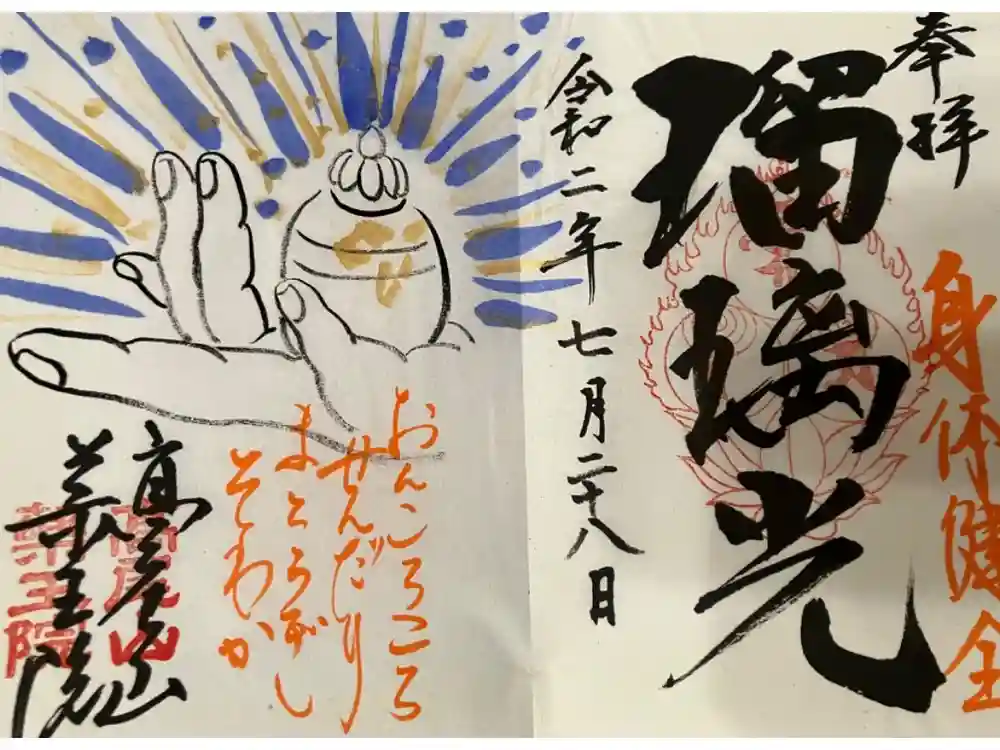 奉拝
身体健全
瑠璃光
令和二年七月二十八日
おんころころ
せんだり
まとうぎし
そわか
高尾山
薬王院
高尾山
薬王院